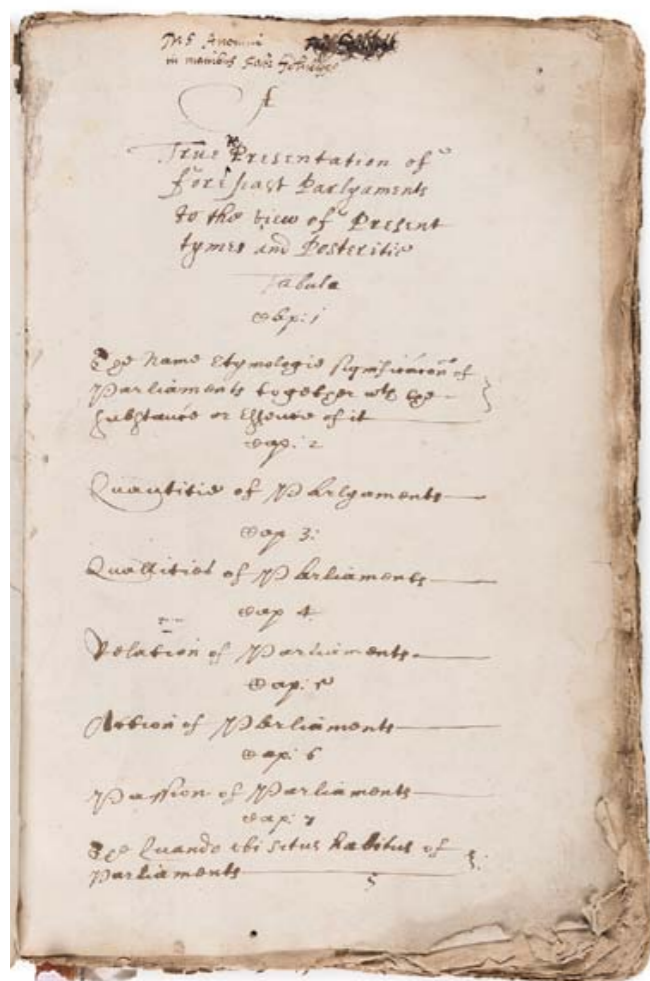 A
True Presentation of
forepast Parlyaments
to the view of Present
tymes and Posteritie
Tabula
Cap: 1
The Name Etymologie signification of
Parliaments together wth the
substance or Essence of it
Cap: 2
Quantitie of Parlyaments
Cap 3:
Quallities of Parliaments
Cap 4
Relation of Parliaments
Cap: 5
Action of Parliaments
Cap: 6
Passion of Parliaments
Cap: 7
The Quando ubi situs habitus of
Parliaments